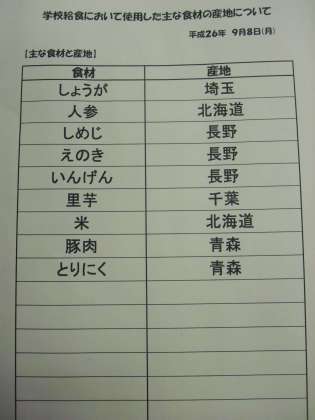 学校給食において使用した主な食材の産地について
平成26年 9月8日(月)
【主な食材と産地】
食材 産地
しょうが 埼玉
人参 北海道
しめじ 長野
えのき 長野
いんげん 長野
里芋 千葉
米 北海道
豚肉 青森
とりにく 青森